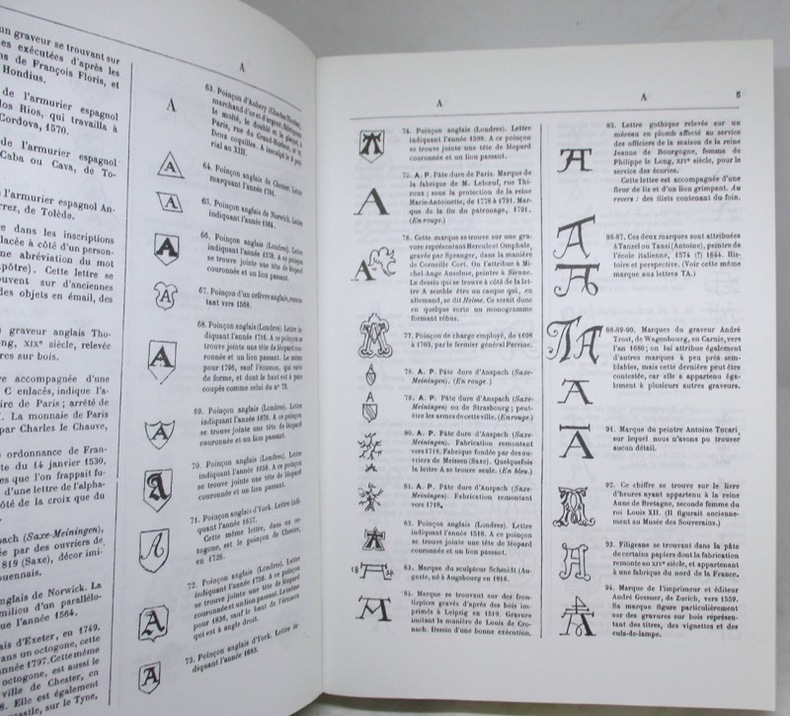 un graveur se trouvant sur
es exécutées d'après les
ns de François Floris, et
Hondius.
de l'armurier espagnol
los Rios, qui travailla à
Cordova, 1570.
de l'armurier espagnol
Caba ou Cava, de To-
l'armurier espagnol An-
rrez, de Tolède.
re dans les inscriptions
lacée à côté d'un person-
ne abréviation du mot
pôtre). Cette lettre se
ouvent sur d'anciennes
des objets en émail, des
graveur anglais Tho-
ng, XIXe siècle, relevée
res sur bois.
re accompagnée d'une
C enlacés, indique l'a-
ire de Paris ; arrêté de
La monnaie de Paris
par Charles le Chauve,
e ordonnance de Fran-
te du 14 janvier 1530,
es que l'on frappait fu-
d'une lettre de l'alpha-
côté de la croix que du
spach (Saxe-Meiningen),
ée par des ouvriers de
819 (Saxe), décor imi-
ouennais.
nglais de Norwick. La
milieu d'un parallélo-
ue l'année 1564.
ais d'Exeter, en 1749.
ans un octogone, cette
année 1797. Cette même
octogone, est aussi le
ville de Chester, en
8. Elle est également
astle, sur le Tyne,
A
A
63. Poinçon d'Aubery (Charles
marchand d'or et d'argent, fabriquant
le moité, le doublé et le plaqué, à
Paris, rue du
Deux coquilles. A inscrit le
rial an XIII.
64. Poinçon anglais de Chester. Lettre
marquant l'année 1791.
65. Poinçon anglais de Norwick. Lettre
indiquant l'année 1564.
66. Poinçon anglais (Londres). Lettre
indiquant l'année 1578. A ce poinçon
se trouve jointe une tête de léopard
couronnée et un lion passant.
67. Poinçon d'un orfèvre anglais, remon-
tant vers 1568.
68. Poinçon anglais (Londres). Lettre in-
diquant l'année 1716. A ce poinçon se
trouve jointe une tête de léopard cou-
ronnée et un lion passant. Le même
pour 1796, sauf l'écusson, qui varie
de forme, et dont le haut est à pans
coupés comme celui du n° 72.
69. Poinçon anglais (Londres). Lettre
indiquant l'année 1876. A ce poinçon
se trouve jointe une tête de léopard
couronnée et un lion passant.
70. Poinçon anglais (Londres). Lettre
indiquant l'année 1658. A ce poinçon
se trouve jointe une tête de léopard
couronnée et un lion passant.
71. Poinçon anglais d'York. Lettre indi-
quant l'année 1637.
Cette même lettre, dans un oc-
togone, est le poinçon de Chester,
en 1726.
72. Poinçon anglais (Londres). Lettre
indiquant l'année 1756. A ce poinçon
se trouve jointe une tête de léopard
couronnée et un lion passant. Le même
pour 1836, sauf le haut de l'écusson
qui est à angle droit.
73. Poinçon anglais d'York. Lettre in-
diquant l'année 1683.
A
A
5
74. Poinçon anglais (Londres). Lettre
indiquant l'année 1598. A ce poinçon
se trouve jointe une tête de léopard
couronnée et un lion passant.
75. A. P. Pâte dure de Paris. Marque de
la fabrique de M. Lebœuf, rue Thi-
roux ; sous la protection de la reine
Marie-Antoinette, de 1778 à 1791. Mar-
que de la fin du patronage, 1791.
(En rouge.)
A
76. Cette marque se trouve sur une gra-
vure représentant Hercule et Omphale,
gravée par Spranger, dans la manière
de Corneille Cort. On l'attribue à Mi-
chel-Ange Anselme, peintre à Sienne.
Le dessin qui se trouve à côté de la let-
tre A semble être un casque qui, en
allemand, se dit Helme. Ce serait donc
en quelque sorte un monogramme
formant rébus.
A
77. Poinçon de charge employé, de 1698
à 1703, par le fermier général Perrine.
78. A. P. Pâte dure d'Anspach (Saxe-
Meiningen). (En rouge.)
79. A. P. Pâte dure d'Anspach (Saxe-
Meiningen) ou de Strasbourg ; peut-
être les armes de cette ville. (En rouge.)
80. A. P. Pâte dure d'Anspach (Saxe-
Meiningen). Fabrication remontant
vers 1718. Fabrique fondée par des ou-
vriers de Meissen (Saxe). Quelquefois
la lettre A se trouve seule. (En bleu.)
81. A. P. Pâte dure d'Anspach (Saxe-
Meiningen). Fabrication remontant
vers 1718.
82. Poinçon anglais (Londres). Lettre
indiquant l'année 1518. A ce poinçon
se trouve jointe une tête de léopard
couronnée et un lion passant.
83. Marque du sculpteur Schmidt (Au-
guste, né à Augsbourg en 1616.
84. Marque se trouvant sur des fron-
tispices gravés d'après des bois im-
primés à Leipzig en 1519. Graveur
imitant la manière de Louis de Cro-
nach. Dessin d'une bonne exécution.
85. Lettre gothique relevée sur un
méreau en plomb affecté au service
des officiers de la maison de la reine
Jeanne de Bourgogne, femme de
Philippe le Long, XIVe siècle, pour le
service des écuries.
Cette lettre est accompagnée d'une
fleur de lis et d'un lion grimpant. Au
revers : des filets contenant du foin.
86-87. Ces deux marques sont attribuées
à Tanzel ou Tanzi (Antoine), peintre de
l'école italienne, 1574 (?) 1644. His-
toire et perspective. (Voir cette même
marque aux lettres TA.)
88-89-90. Marques du graveur André
Trost, de Wagenbourg, en Carnie, vers
l'an 1680 ; on lui attribue également
d'autres marques à peu près sem-
blables, mais cette dernière peut être
contestée, car elle a appartenu éga-
lement à plusieurs autres graveurs.
91. Marque du peintre Antoine Tocari,
sur lequel nous n'avons pu trouver
aucun détail.
92. Ce chiffre se trouve sur le livre
d'heures ayant appartenu à la reine
Anne de Bretagne, seconde femme du
roi Louis XII. (Il figurait ancienne-
ment au Musée des Souverains.)
93. Filigrane se trouvant dans la pâte
de certains papiers dont la fabrication
remonte au XIVe siècle, et appartenant
à une fabrique du nord de la France.
94. Marque de l'imprimeur et éditeur
André Gessner, de Zurich, vers 1559.
Sa marque figure particulièrement
sur des gravures sur bois représen-
tant des titres, des vignettes et des
culs-de-lampe.